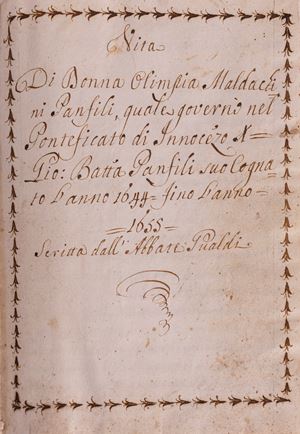 Vita
Di Donna Olimpia Maldachi
ni Panfili, quale governò nel
Ponteficato di Innocēzo X =
Gio: Batt̄a Panfili suo Cogna
to L'anno 1644 = fino L'anno =
= 1655 =
Scritta dall'Abbate Gualdi